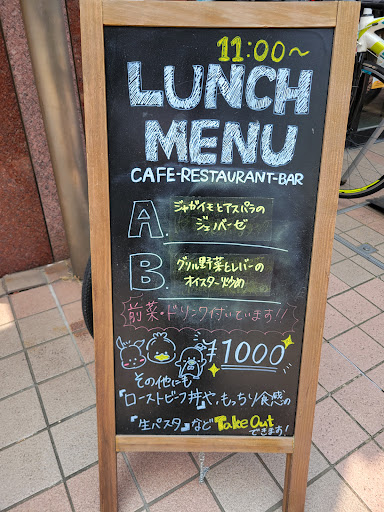 11:00〜
LUNCH
MENU
CAFE-RESTAURANT-BAR
A. ジャガイモとアスパラの
ジェノバーゼ
B. グリル野菜とレバーの
オイスター炒め
前菜・ドリンク付いています!!
¥1000
その他にも
「ローストビーフ丼」や、もっちり食感の
「生パスタ」など Take Out
できます!